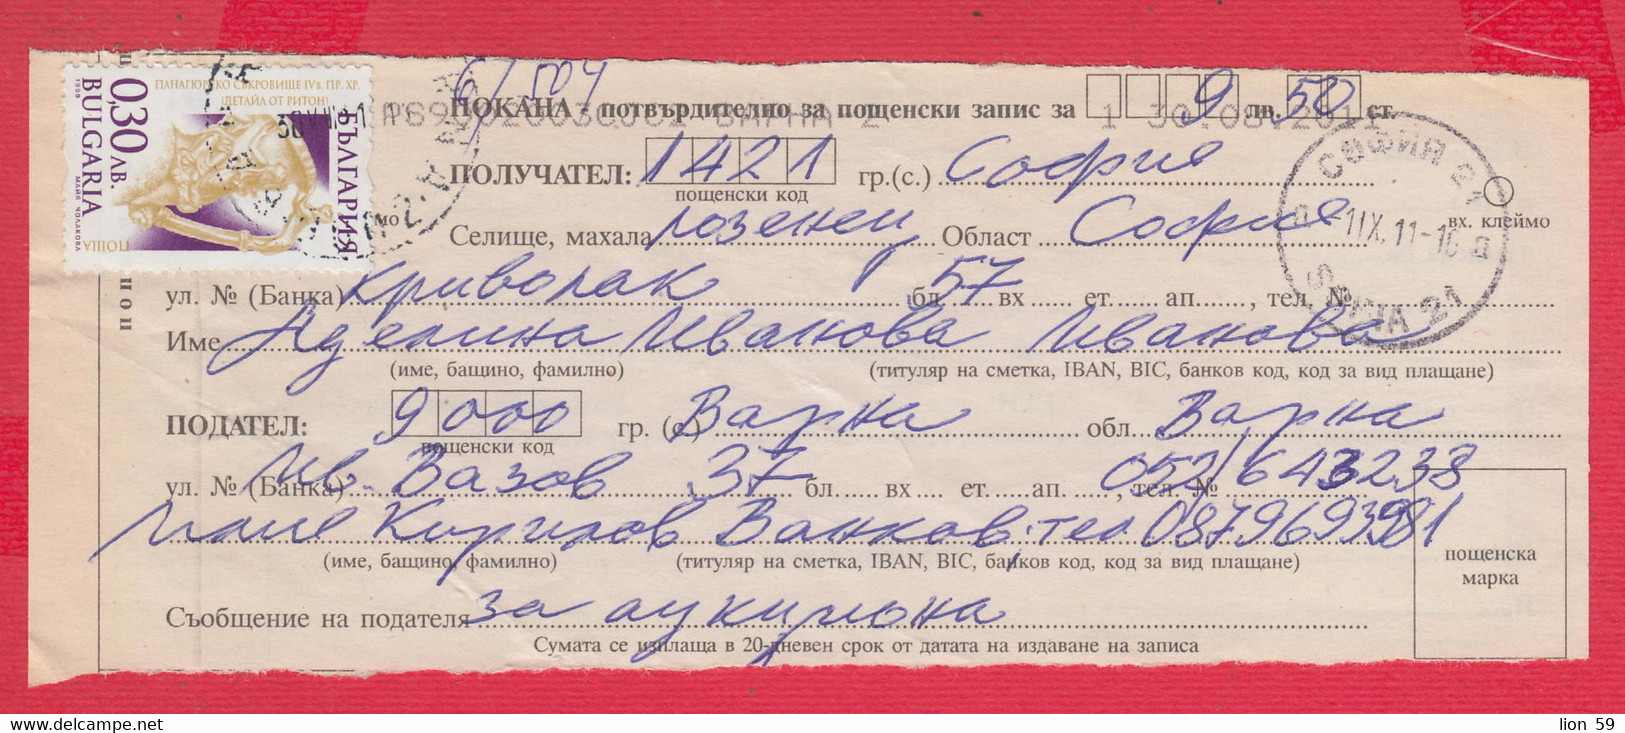 6/504
ПАНАГЮРСКО СЪКРОВИЩЕ IV в. ПР. ХР.
(ДЕТАЙЛ ОТ РИТОН)
0,30 ЛВ.
BULGARIA
1999
МАЙЯ ЧОЛАКОВА
БЪЛГАРИЯ
ПОЩА
ПОКАНА - потвърдително за пощенски запис за 9 лв. 50 ст.
ВАРНА 2 1 30.08.2011
ПОЛУЧАТЕЛ: 1421 гр.(с.) София
пощенски код
СОФИЯ 21
1IX.11-16
SOFIA 21
вх. клеймо
Селище, махала Лозенец Област София
ул. № (Банка) Криволак бл. 57 вх ет. ап. , тел. №
Име Аделина Иванова Иванова
(име, бащино, фамилно) (титуляр на сметка, IBAN, BIC, банков код, код за вид плащане)
ПОДАТЕЛ: 9000 гр. (с.) Варна обл. Варна
пощенски код
ул. № (Банка) Ив. Вазов 37 бл. вх ет. ап. , тел. № 052/643238
Кирилов Ванков. тел 0879693981
(име, бащино, фамилно) (титуляр на сметка, IBAN, BIC, банков код, код за вид плащане)
пощенска
марка
Съобщение на подателя за аукциона
Сумата се изплаща в 20-дневен срок от датата на издаване на записа
lion 59